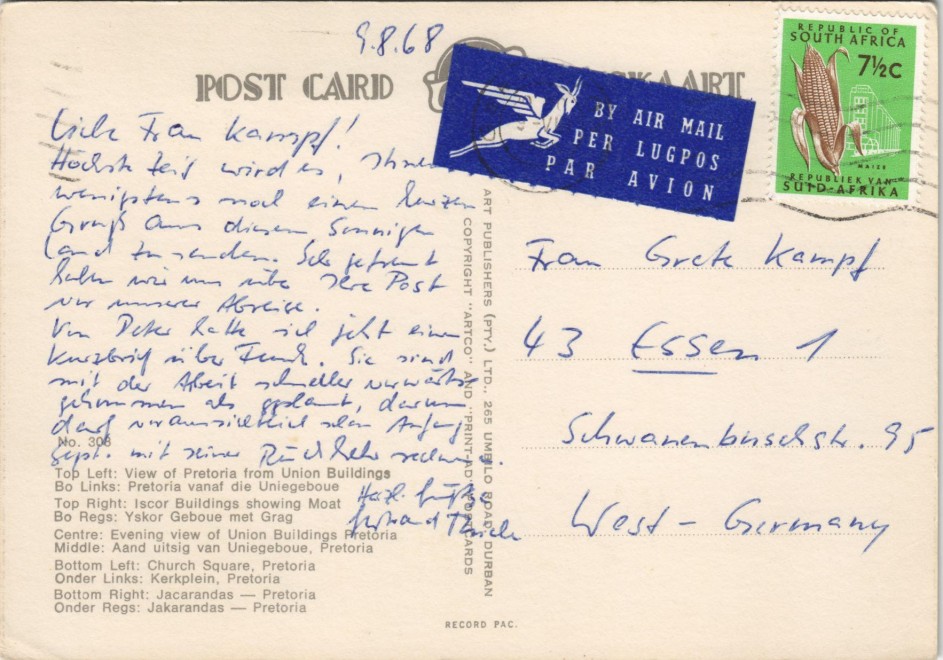 9.8.68
POST CARD
SKAART
BY AIR MAIL
PER LUGPOS
PAR AVION
REPUBLIC OF
SOUTH AFRICA
7½C
MAIZE
REPUBLIEK VAN
SUID-AFRIKA
Liebe Frau Kampf!
Höchste Zeit wird es, Ihnen
wenigstens mal einen kurzen
Gruß aus diesem Sonnigen
Land zu senden. Sehr gefreut
haben wir uns über Ihre Post
vor unserer Abreise.
Von Peter hatte ich jetzt einen
Kurzbrief über Funk. Sie sind
mit der Arbeit schneller vorwärts
gekommen als geplant, darum
darf voraussichtlich schon Anfang
Sept. mit seiner Rückkehr rechnen.
Herzl. Grüße
Gertraud
Frau Grete Kampf
43 Essen 1
Schwanenbuschstr. 95
West-Germany
ART PUBLISHERS (PTY.) LTD., 265 UMBILO ROAD, DURBAN
COPYRIGHT "ARTCO" AND "PRINT-AD" POSTCARDS
No. 308
Top Left: View of Pretoria from Union Buildings
Bo Links: Pretoria vanaf die Uniegeboue
Top Right: Iscor Buildings showing Moat
Bo Regs: Yskor Geboue met Grag
Centre: Evening view of Union Buildings Pretoria
Middle: Aand uitsig van Uniegeboue, Pretoria
Bottom Left: Church Square, Pretoria
Onder Links: Kerkplein, Pretoria
Bottom Right: Jacarandas — Pretoria
Onder Regs: Jakarandas — Pretoria
RECORD PAC.